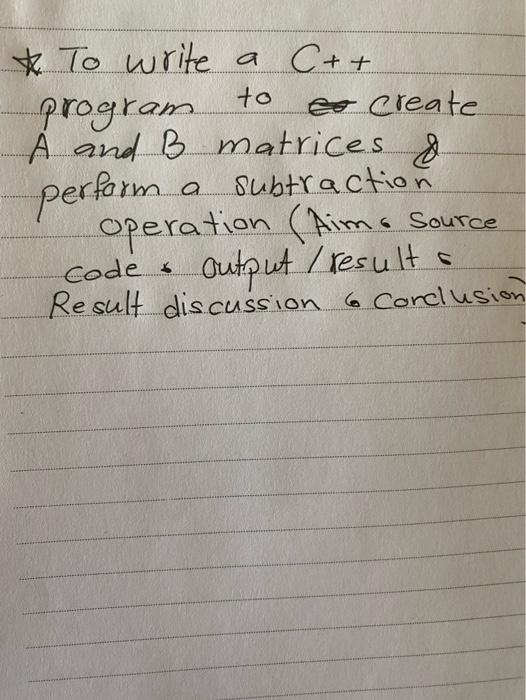 * To write a C++
program to create
A and B matrices &
perform a subtraction
operation (Aim، Source
code، output / result،
Result discussion، Conclusion)